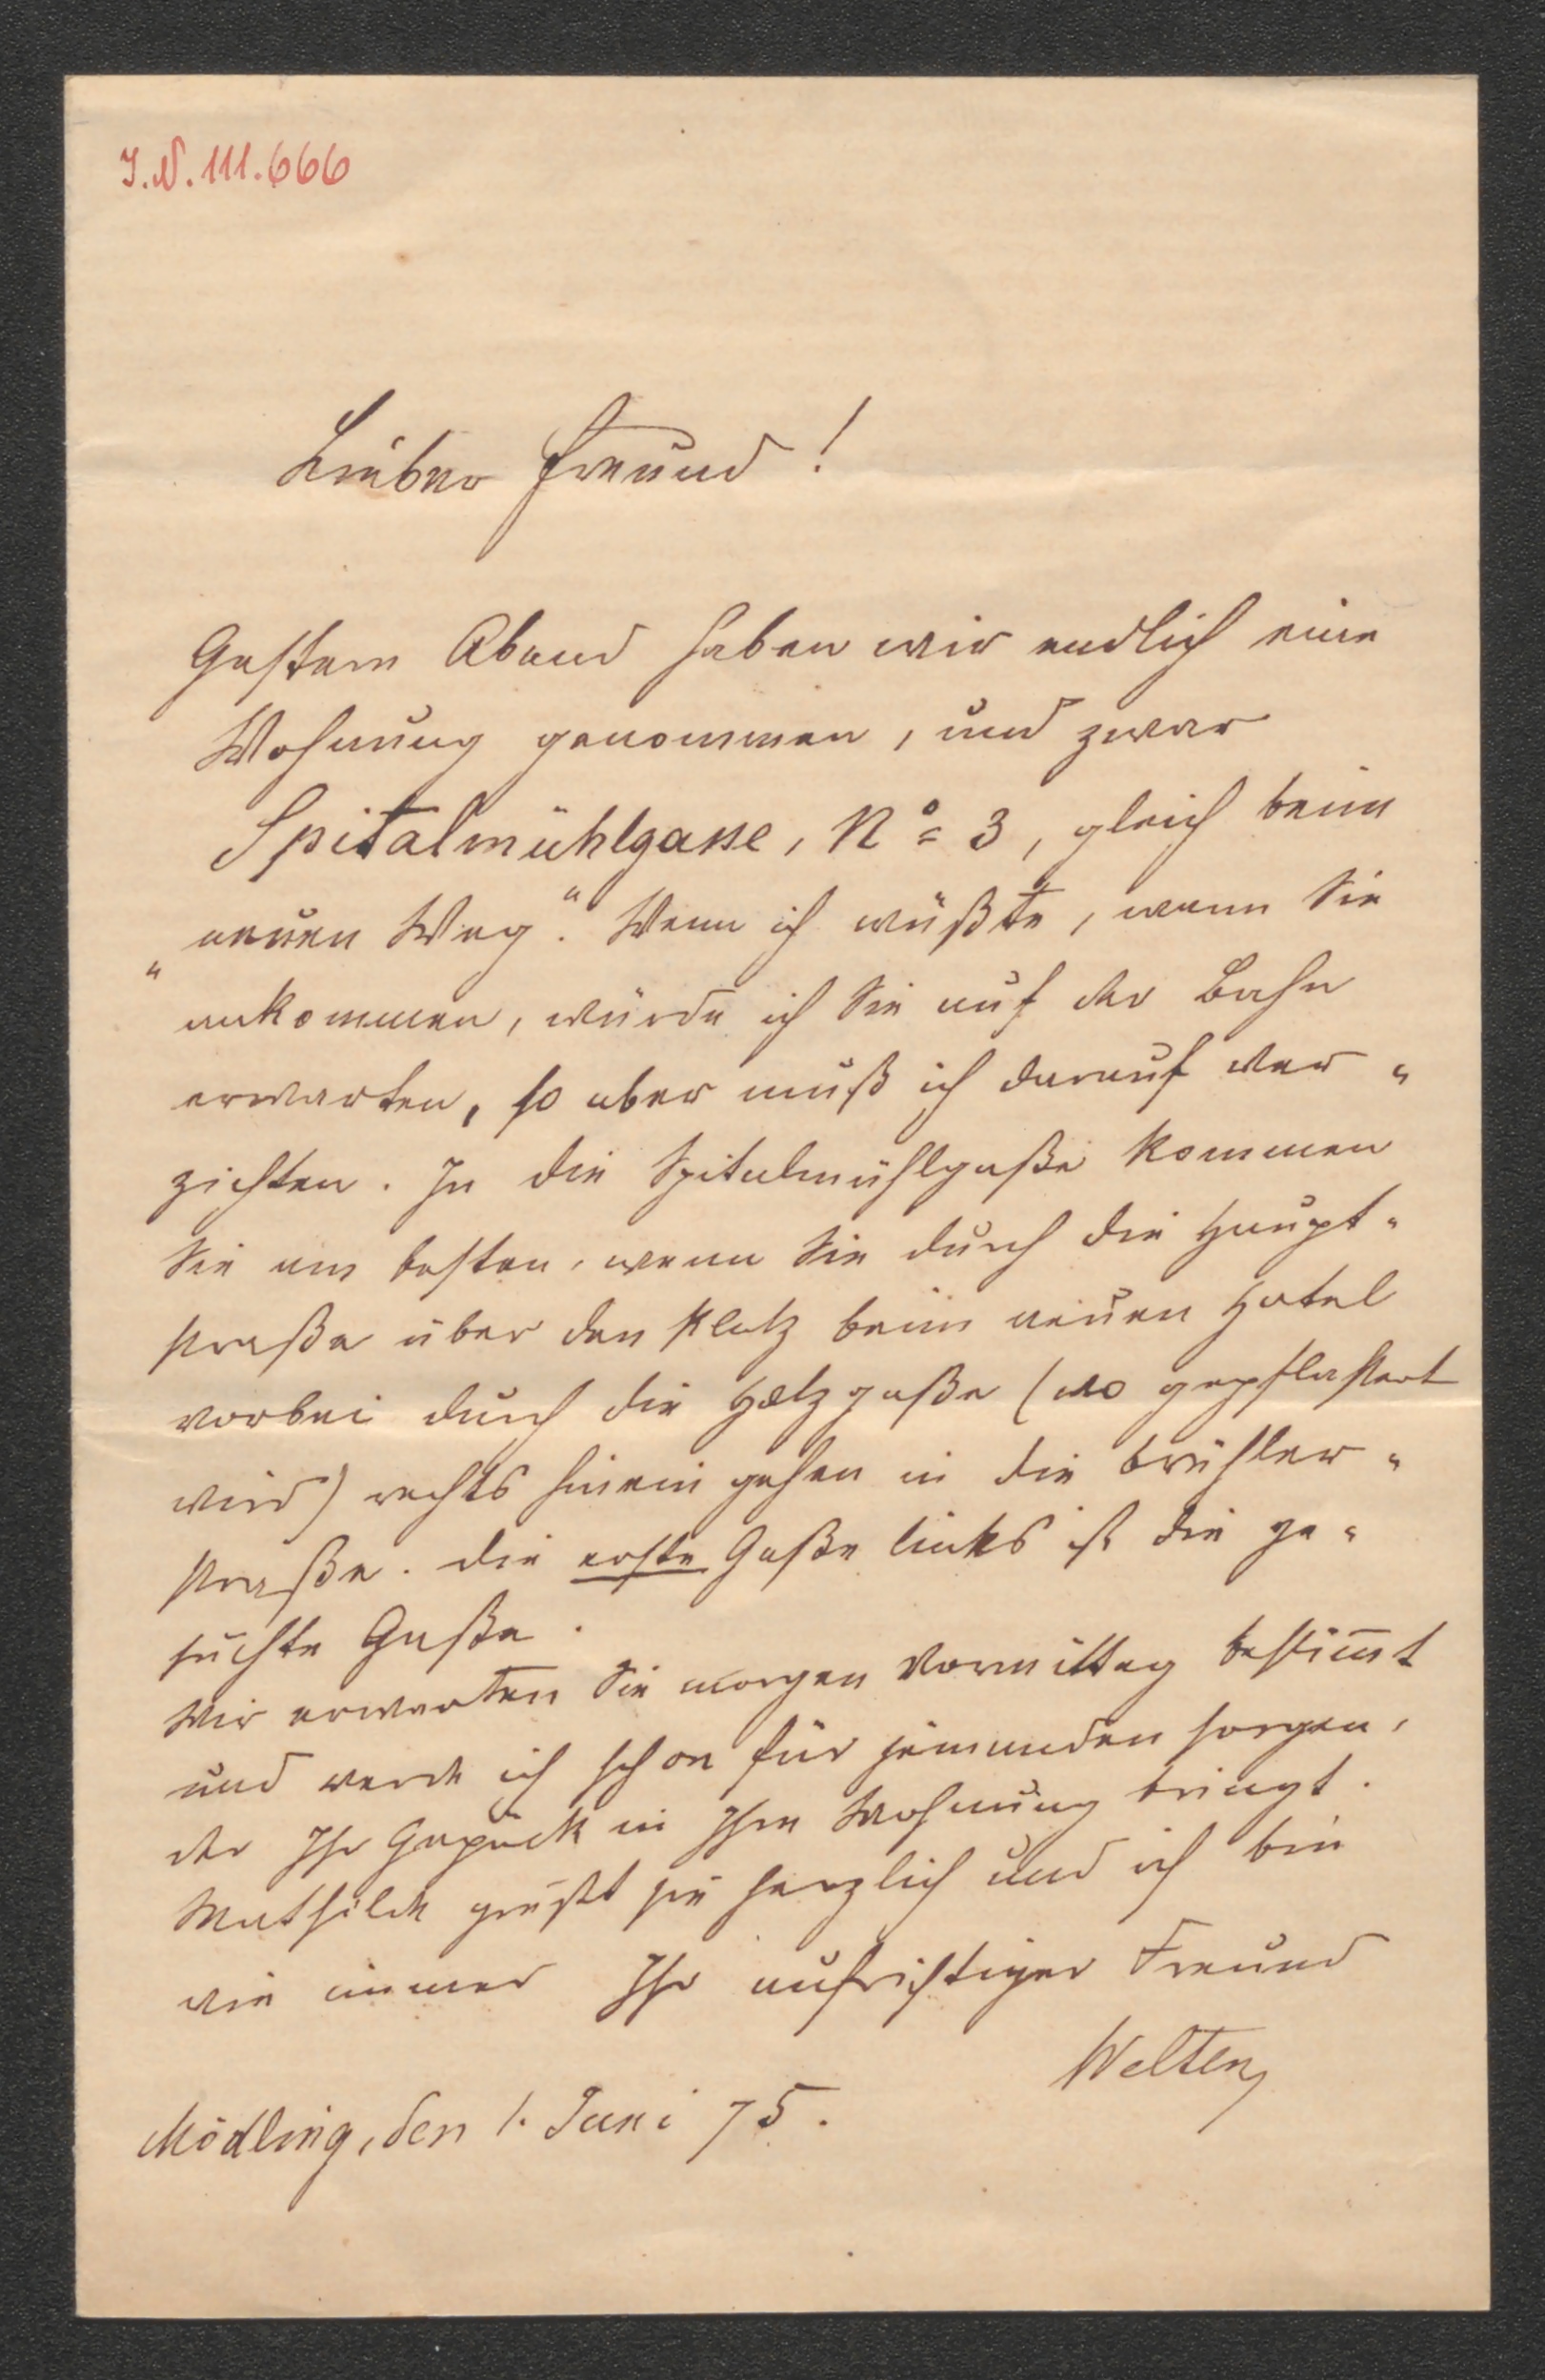 I.N. 111.666
Lieber Freund!
Gestern Abend haben wir endlich eine
Wohnung genommen, und zwar
Spitalmühlgasse, No 3, gleich beim
„neuen Weg“. Wenn ich wüßte, wann Sie
ankommen, würde ich Sie auf der Bahn
erwarten, so aber muß ich darauf ver„
zichten. In die Spitalmühlgaße kommen
Sie am besten, wenn Sie durch die Haupt„
straße über den Platz beim neuen Hotel
vorbei durch die Holzgaße (wo gepflastert
wird) rechts hinein gehen in die Brühler„
straße. Die erste Gaße links ist die ge„
suchte Gaße.
Wir erwarten Sie morgen Vormittag bestim̅t
und werde ich schon für jemanden sorgen,
der Ihr Gepäck in Ihre Wohnung bringt.
Mathilde grüßt sie herzlich und ich bin
wie immer Ihr aufrichtiger Freund
Welten
Mödling, den 1. Juni 75.